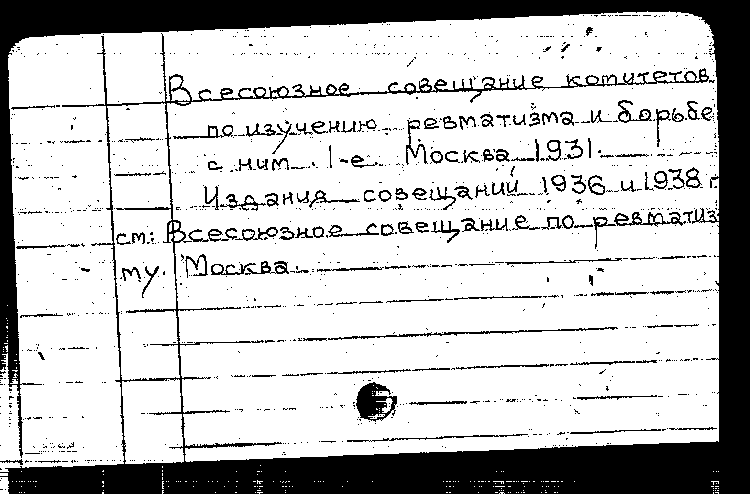 Всесоюзное совещание комитетов
по изучению ревматизма и борьбе
с ним. 1-е. Москва 1931.
Издания совещаний 1936 и 1938 г
см: Всесоюзное совещание по ревматиз
му. Москва.